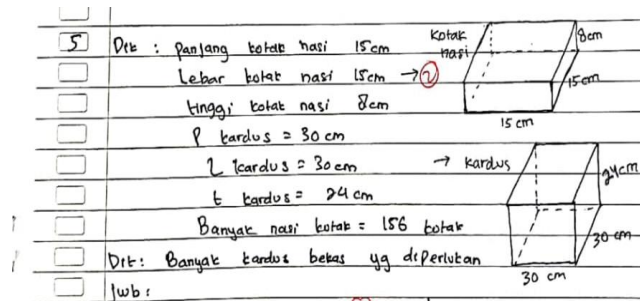 5 Dik : Panjang kotak nasi 15cm
Lebar kotak nasi 15cm → 2
tinggi kotak nasi 8cm
P kardus = 30 cm
L kardus = 30 cm
t kardus = 24 cm
Banyak nasi kotak = 156 kotak
Dit : Banyak kardus bekas yg diperlukan
Jwb :
kotak
nasi
8cm
15cm
15 cm
→ kardus
24cm
30 cm
30 cm